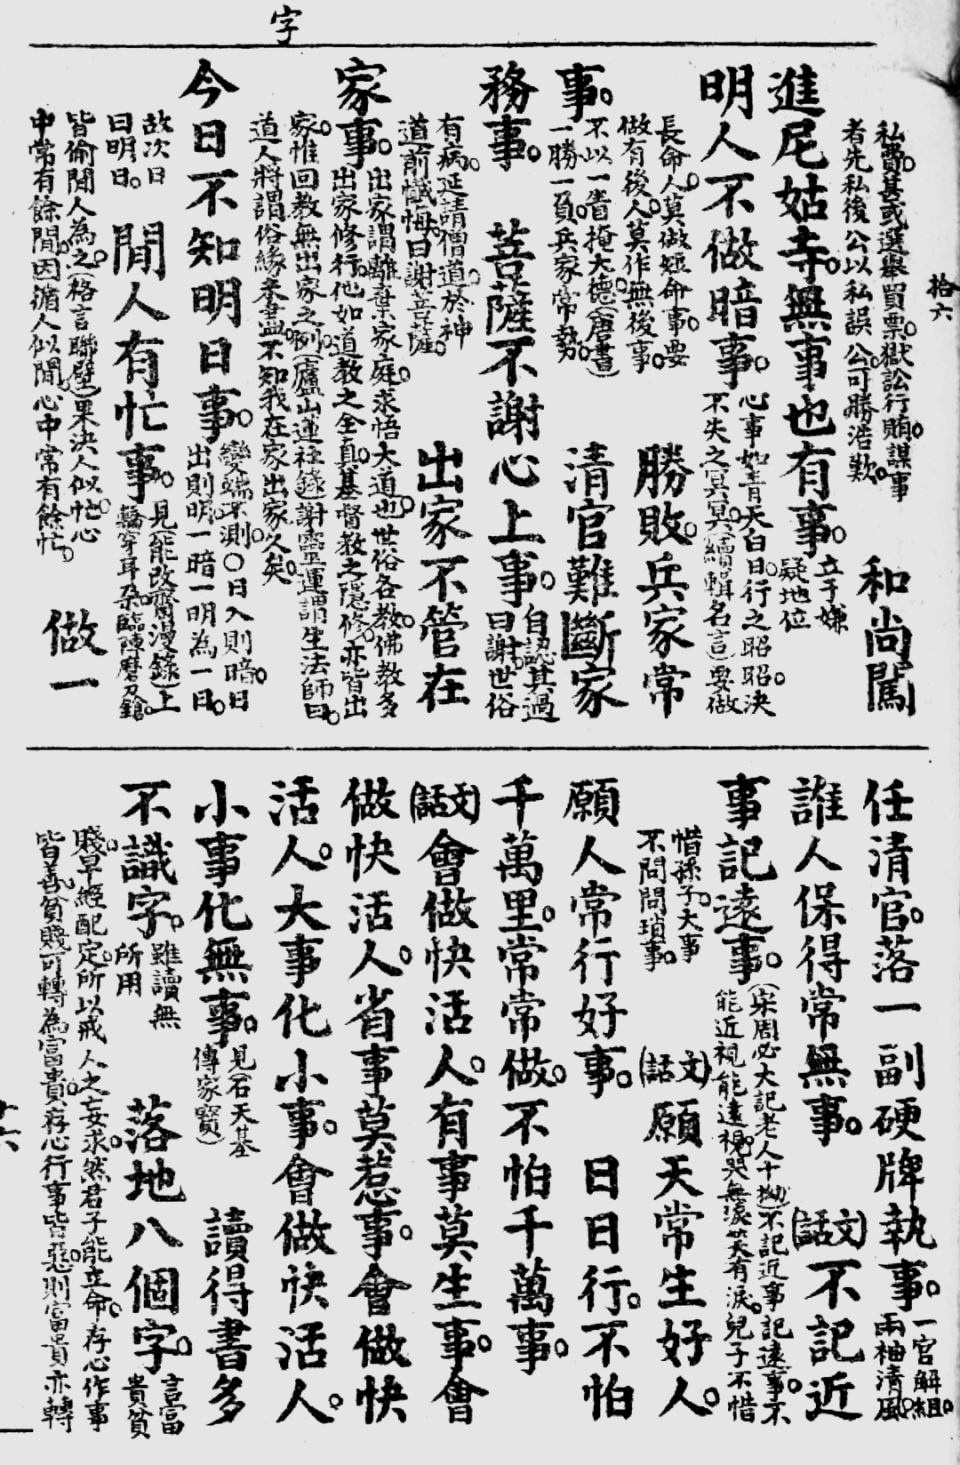 字
拾六
私費。甚或選舉買票。獄訟行賄。謀事
者先私後公。以私誤公。可勝浩歎。
和尚闖
進尼姑寺。無事也有事。
立于嫌
疑地位
明人不做暗事。
心事如青天白日。行之昭昭。決
不失之冥冥。(續輯名言)要做
長命人。莫做短命事。要
做有後人。莫作無後事。
勝敗。兵家常
事。
不以一眚掩大德。(唐書)
一勝一負。兵家常勢。
清官難斷家
務事。
菩薩不謝心上事。
自認其過
曰謝。世俗
有病。延請僧道。於神
道前懺悔。曰謝菩薩。
出家不管在
家事。
出家謂離棄家庭。求悟大道也。世俗各教。佛教多
出家修行。他如道教之全真。基督教之隱修。亦皆出
家。惟回教無出家之例。(廬山蓮社錄)謝靈運謂生法師曰。
道人將謂俗緣未盡。不知我在家出家久矣。
今日不知明日事。
變端不測。〇日入則暗。日
出則明。一暗一明為一日。
故次日
曰明日。
閒人有忙事。
見(能改齋漫錄)上
轎穿耳朵。臨陣磨刀鎗。
皆偷閒人為之。(格言聯璧)果決人似忙。心
中常有餘閒。因循人似閒。心中常有餘忙。
做一
任清官。落一副硬牌執事。
一官解組。
兩袖清風。
誰人保得常無事。
(文話)
不記近
事記遠事。
(宋周必大記老人十拗)不記近事記遠事。不
能近視能遠視。哭無淚。笑有淚。兒子不惜
惜孫子。大事
不問問瑣事。
(文話)
願天常生好人。
願人常行好事。
日日行。不怕
千萬里。常常做。不怕千萬事。
(文話)
會做快活人。有事莫生事。會
做快活人。省事莫惹事。會做快
活人。大事化小事。會做快活人。
小事化無事。
見(石天基
傳家寶)
讀得書多
不識字。
雖讀無
所用
落地八個字。
言富
貴貧
賤。早經配定。所以戒人之妄求。然君子能立命。存心作事
皆善。貧賤可轉為富貴。存心行事皆惡。則富貴亦轉